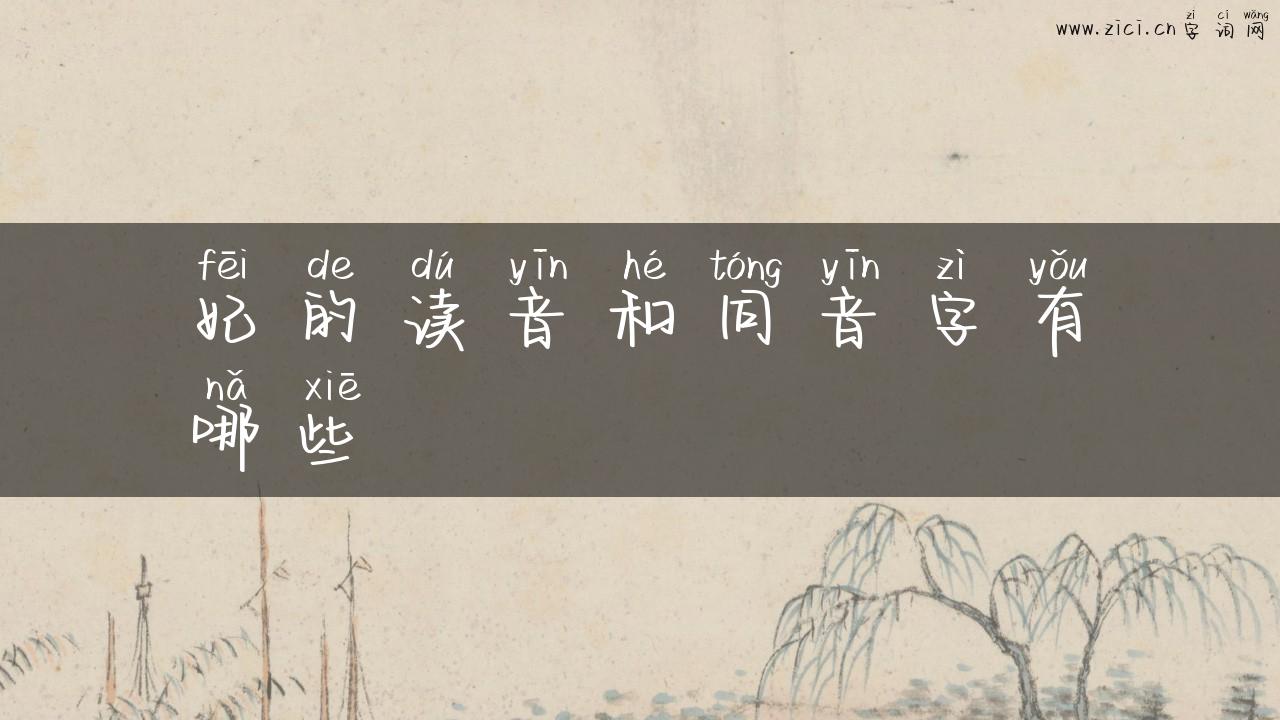 zì cí wǎng
www.zici.cn 字词网
fēi de dú yīn hé tóng yīn zì yǒu
妃的读音和同音字有
nǎ xiē
哪些